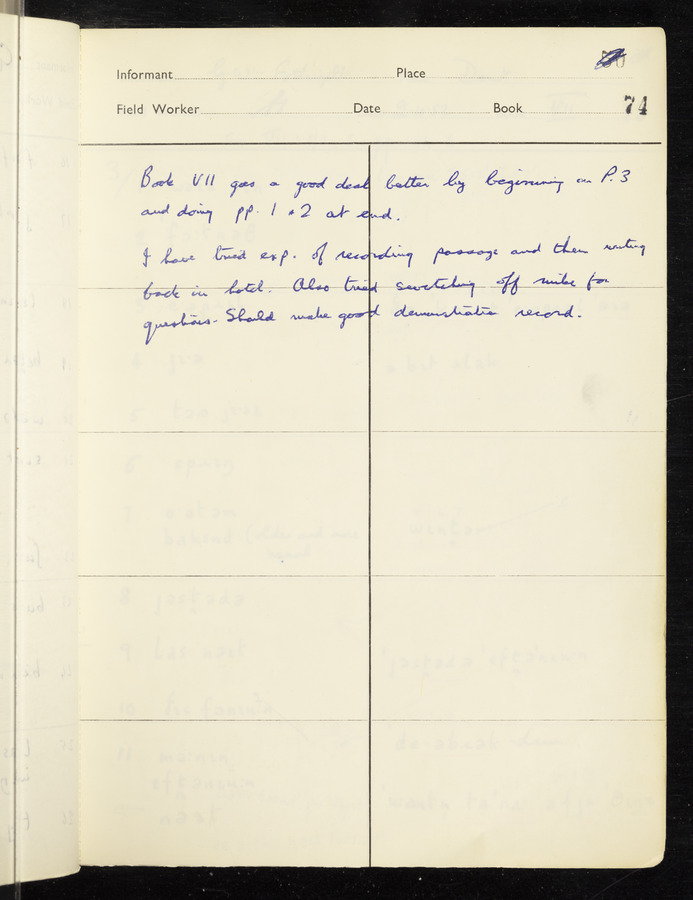 Informant Place
Field Worker Date Book 74
Book VII goes a good deal better by beginning on P. 3
and doing pp. 1 & 2 at end.
I have tried exp. of recording passage and then writing
back in hotel. Also tried switching off mike for
questions. Should make good demonstration record.